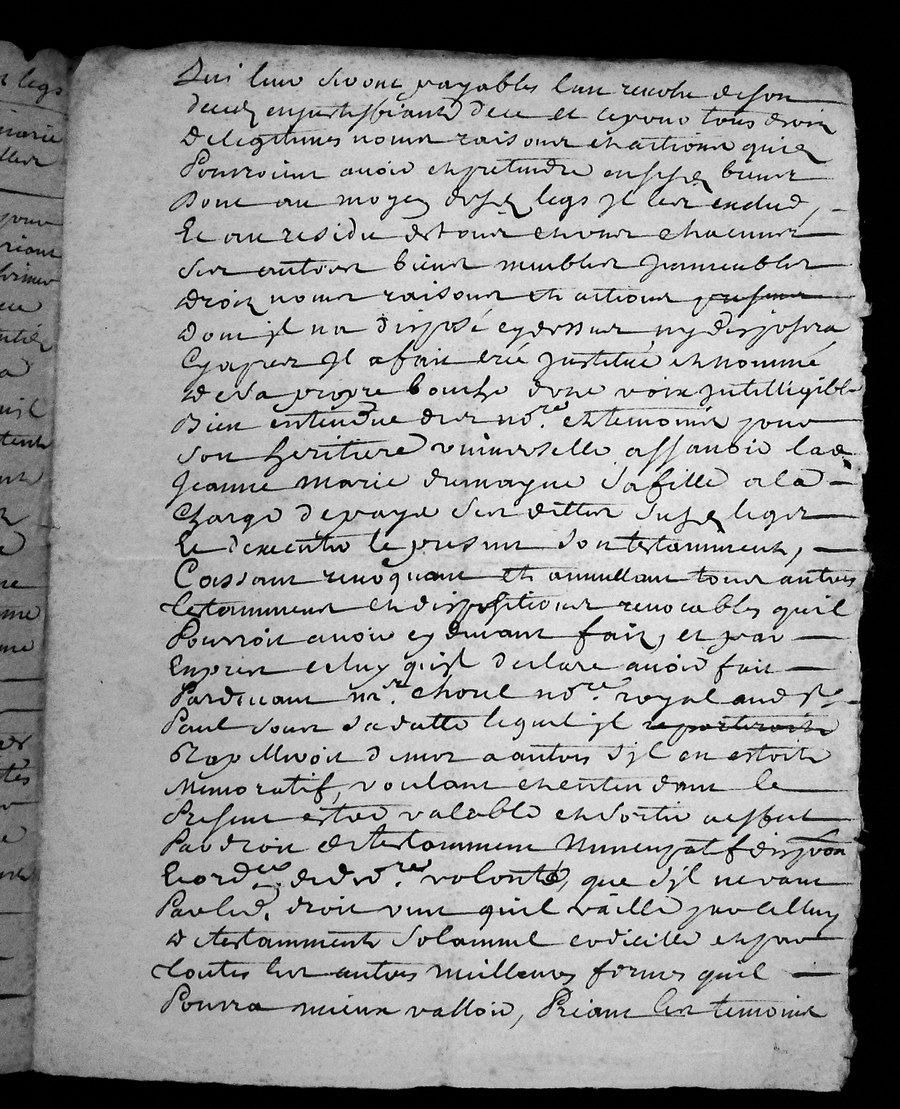 qui leur seront payables l'an revolu de son
deces en justiffiant d'ece et ce pour tous droits
de legitimes noms raisons et actions quils
Pourroient avoir et pretendre en ses biens
Dont au moyen desd legs Jl les exclud,
Et au residu de tous et uns et chacuns
Ses autres biens meubles Jmmeubles
droits noms raisons et actions
Dont jl na disposé cy dessus ny disposera
Cy apres Jl a fait créé Justitué et nommé
de sa propre bouche dune voix Jntelligible
Bien entendue des no.res et temoins pour
son heritiere universelle assavoir lad
Jeanne Marie sa fille a la
Charge de payer ses dettes legs
Et dexecuter le present son testamment,
Cassant revoquant et annullant tous autres
testamments et dispositions revocables quil
Pourroit avoir cy devant faits, et par
Expres celluy quil declare avoir fait
Pardevant m.r choul no.re royal aud st
Paul sous sa datte lequel jl
de mot a autres sjl en estoit
Memoratif, voulant et entendant le
Present estre valable et sortir a effect
Par droit de testamment Nuncupatif
et de d.re volonté, que sjl ne vaut
Par led. droit veut quil vaille par celluy
de testamment solamnel codicille et par
toutes les autres meilleures formes quil
Pourra mieux valloir, Priant les temoins